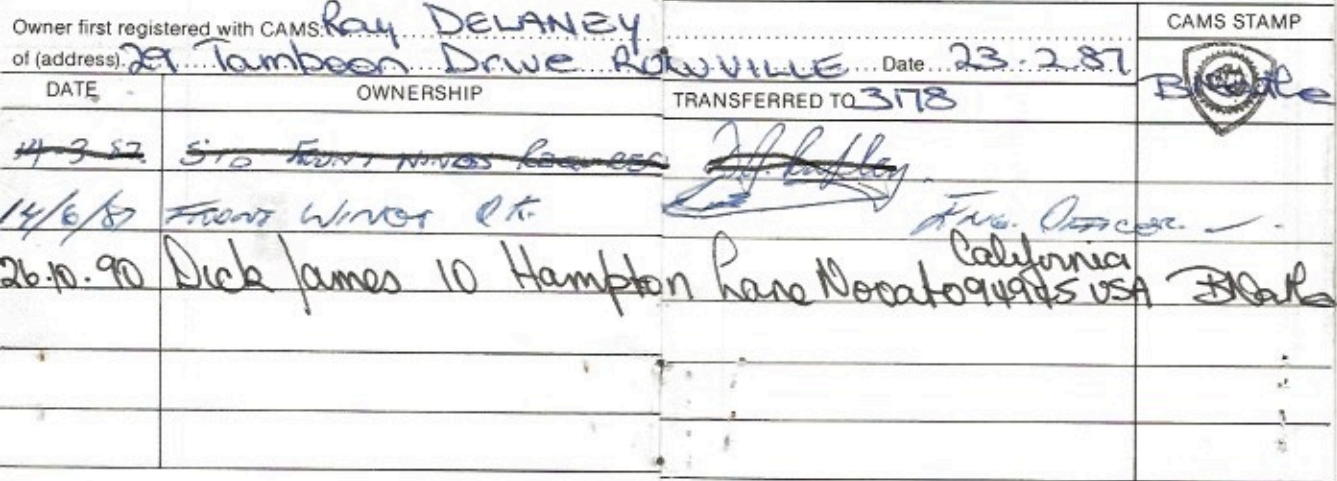 Owner first registered with CAMS: Ray DELANEY
of (address) 29 Tamboon Drive ROWVILLE Date 23.2.87
3178
CAMS STAMP
DATE OWNERSHIP TRANSFERRED TO
14-3-87 STD FRONT WINGS
14/6/87 FRONT WINGS O.K. ENG. OFFICER
26.10.90 Dick James 10 Hampton Lane Novato 94945 USA
California